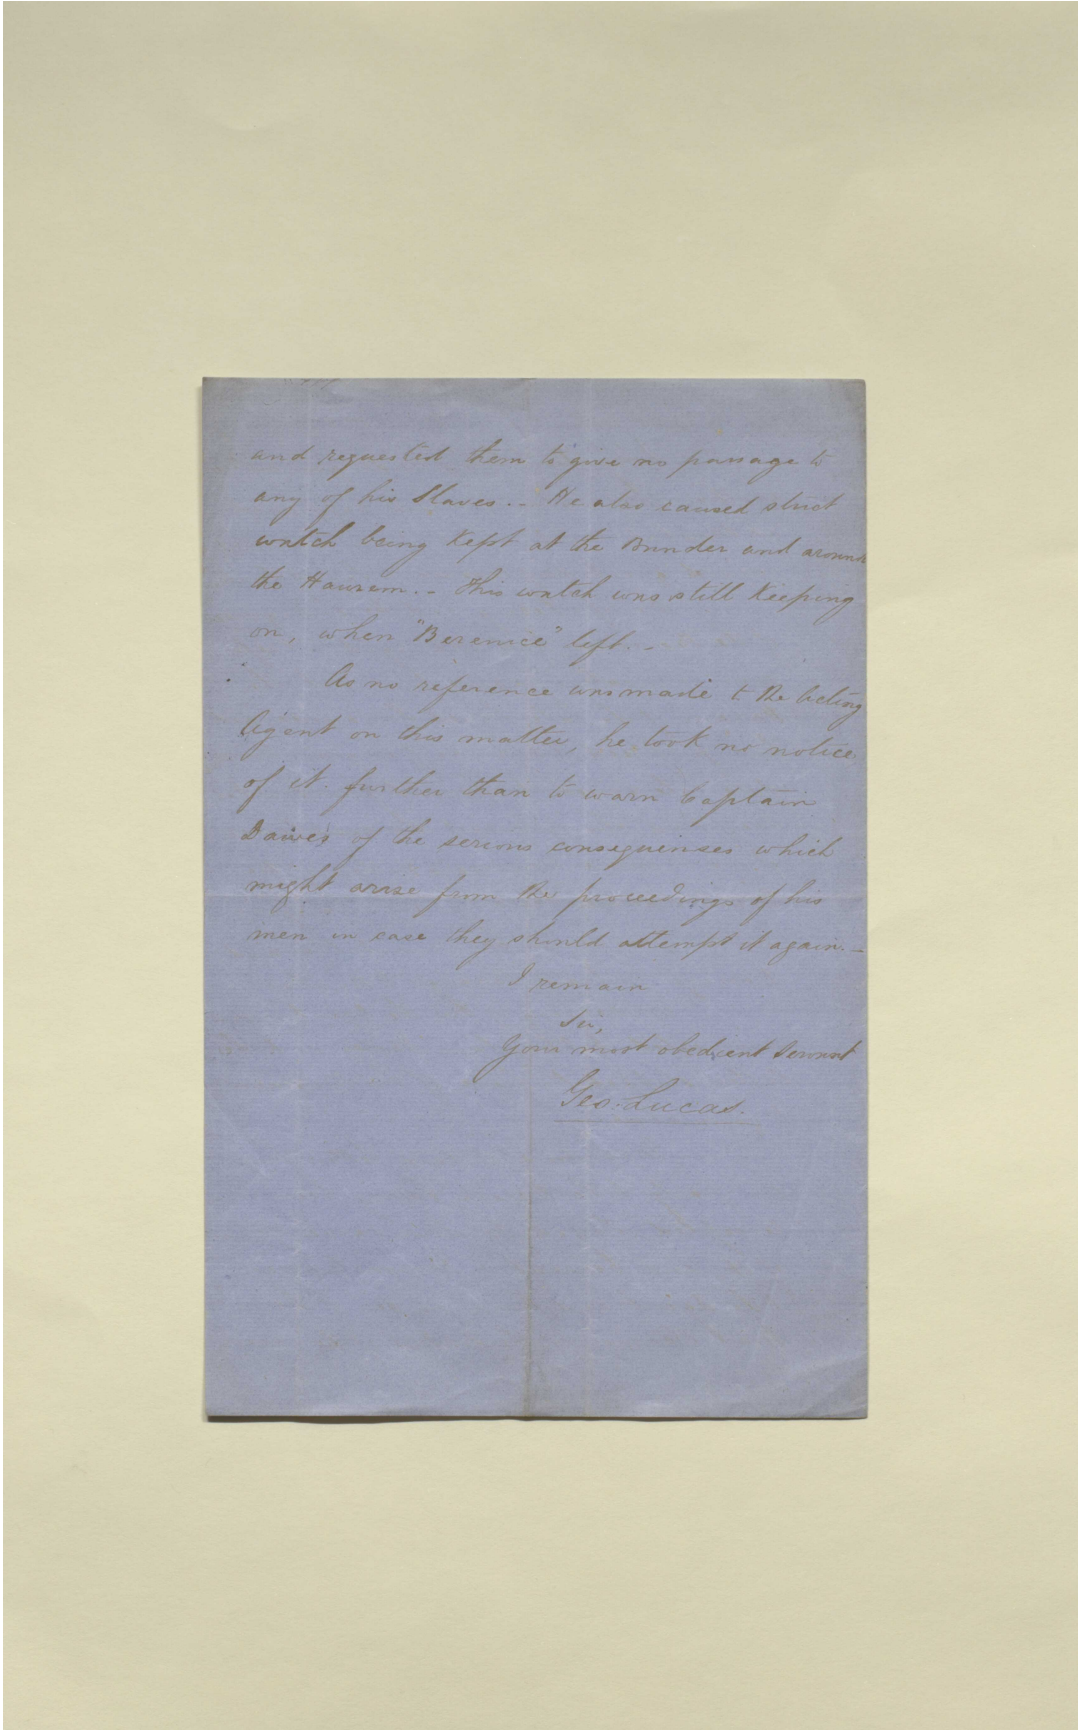 and requested them to give no passage to
any of his Slaves.. He also caused strict
watch being kept at the Bunder and around
the Haurem.. This watch was still keeping
on, when "Berenice" left..
As no reference was made to the Acting
Agent on this matter, he took no notice
of it further than to warn Captain
Dawes of the serious consequenses which
might arise from the proceedings of his
men in case they should attempt it again._
I remain
Sir,
Your most obedient Servant
Geo. Lucas.